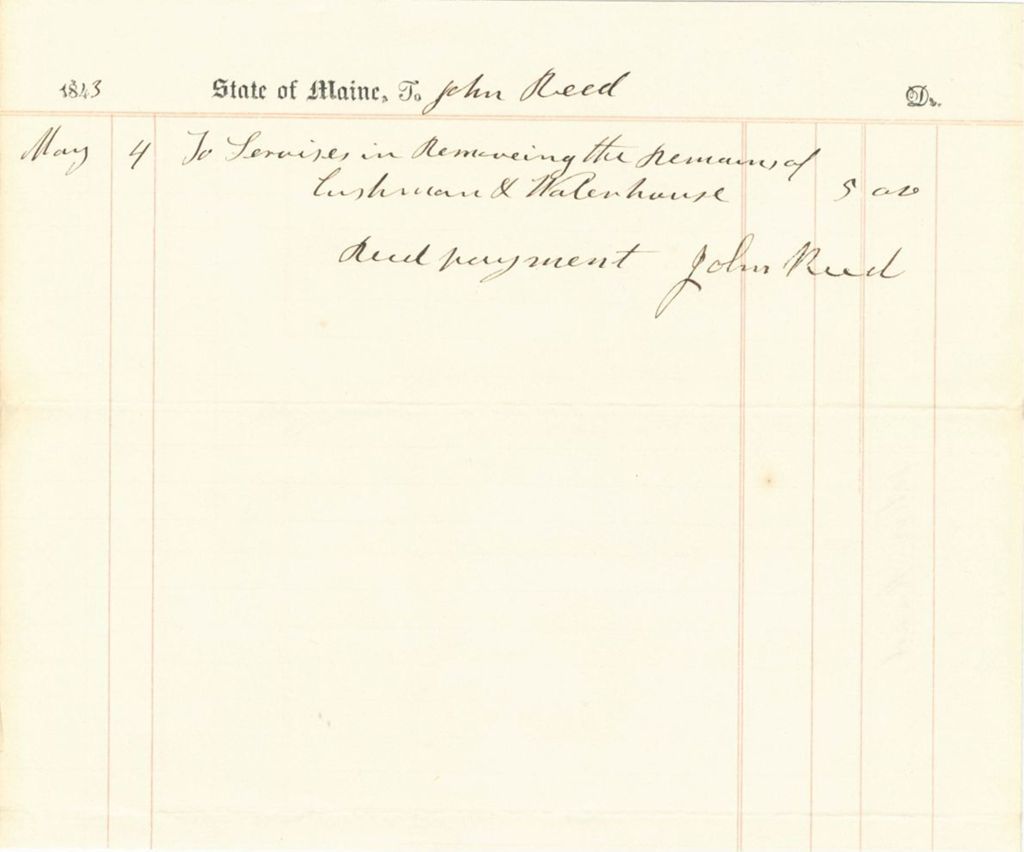 1843 State of Maine, To John Reed Dr.
May 4 To Servises in Removeing the Remains of
Cushman & Waterhouse 5 00
Recd payment John Reed